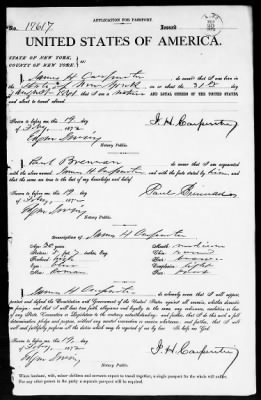 APPLICATION FOR PASSPORT.
No. 19617 Issued
UNITED STATES OF AMERICA.
STATE OF NEW YORK,
COUNTY OF NEW YORK. } ss:
I, James H Carpenter do swear that I was born in
the State of New York on the 31st day
of August 1821 that I am a native AND LOYAL CITIZEN OF THE UNITED STATES,
and about to travel abroad.
Sworn to before me this 19 day
of 1872 J. H. Carpenter
Notary Public.
I, Paul Brennan do swear that I am acquainted
with the above named James H Carpenter and with the facts stated by him, and
that the same are true to the best of my knowledge and belief.
Sworn to before me this 19 day
of 1872 Paul Brennan
Notary Public.
Description of James H Carpenter
Age: 50 years Mouth: medium
Stature: 5 ft 7 inches, Eng. Chin:
Forehead: high Hair:
Eyes: Complexion: light
Nose: Roman Face:
I, James H Carpenter do solemnly swear that I will support,
protect and defend the Constitution and Government of the United States against all enemies, whether domestic
or foreign; and that I will bear true faith, allegiance and loyalty to the same, any ordinance, resolution or law
of any State, Convention or Legislature to the contrary notwithstanding; and further, that I do this with a full
determination, pledge and purpose, without any mental reservation or evasion whatsoever; and further, that I will
well and faithfully perform all the duties which may be required of me by law. So help me God.
Sworn to before me this 19 day
of 1872 J. H. Carpenter
Notary Public.
When husband, wife, minor children and servants expect to travel together, a single passport for the whole will suffice.
For any other person in the party a separate passport will be required.